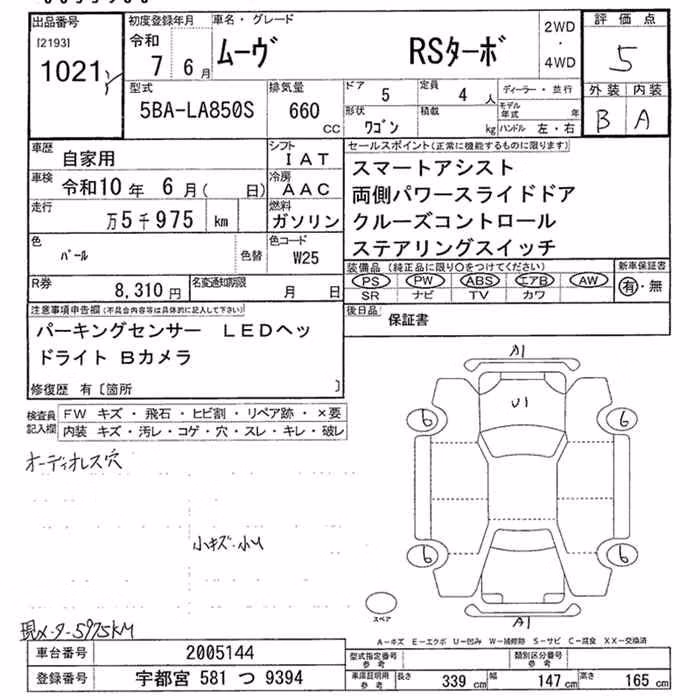 出品番号 初度登録年月 車名・グレード 2WD・4WD 評価点
[2193] 令和 7 6月 ムーヴ RSターボ 5
1021
型式 排気量 ドア 5 定員 4人 ディーラー・並行 外装 内装
5BA-LA850S 660 CC 形状 ワゴン 積載 kg モデル年式 年 ハンドル 左・右 B A
車歴 自家用 シフト IAT セールスポイント(正常に機能するものに限ります)
車検 令和10年 6月( 日) 冷房 AAC スマートアシスト
両側パワースライドドア
走行 万5千975 km 燃料 ガソリン クルーズコントロール
色 パール 色替 色コード W25 ステアリングスイッチ
装備品(純正品に限り○をつけてください) 新車保証書
R券 8,310円 名変通知期限 月 日 PS PW ABS エアB AW 有・無
SR ナビ TV カワ
注意事項申告欄(不具合内容等は具体的に記入して下さい) 後日品 保証書
パーキングセンサー LEDヘッ
ドライト Bカメラ
修復歴 有[箇所 ]
検査員記入欄 FW キズ・飛石・ヒビ割・リペア跡・×要
内装 キズ・汚レ・コゲ・穴・スレ・キレ・破レ
A1
U1
6 6
オーディオレス穴
小キズ・小U
6 6
スペア
A1
現メーター5975KM
A-キズ E-エクボ U-凹み W-補修跡 S-サビ C-腐食 XX-交換済
車台番号 2005144 型式指定番号 参考 類別区分番号 参考
登録番号 宇都宮 581 つ 9394 車庫証明用 参考 長さ 339 cm 幅 147 cm 高さ 165 cm